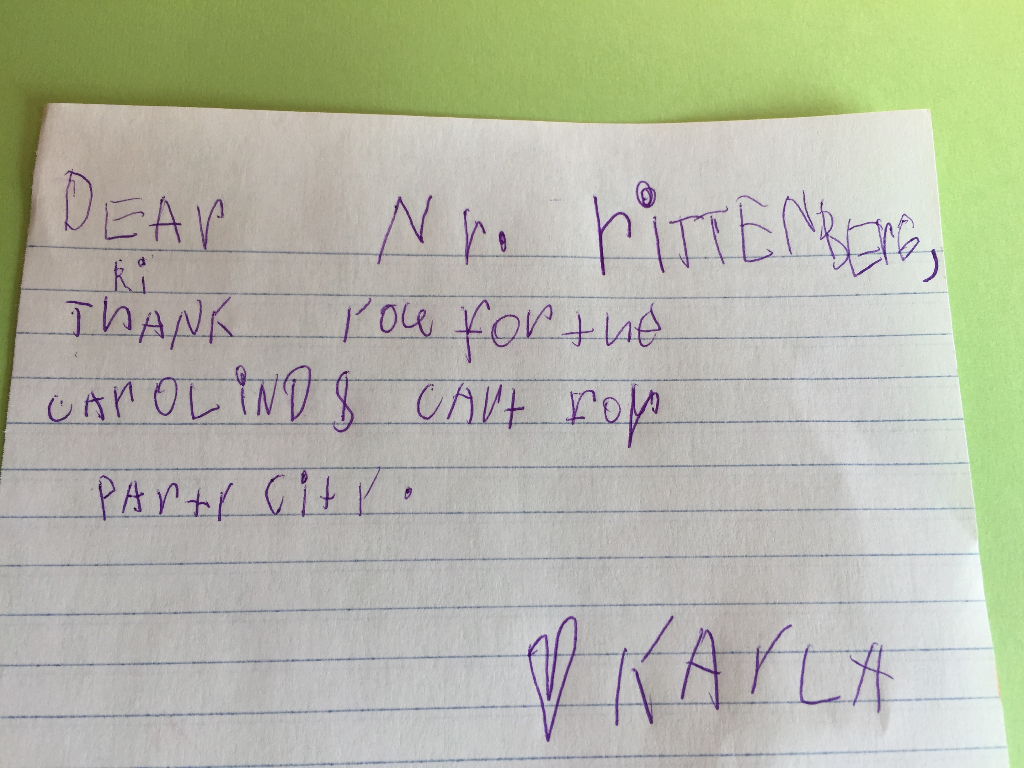 DEAr Nr. riTTENBErG,
Ri
THANK rou for the
CArOLiND8 CArt rop
PArtr Citr.
KArLA